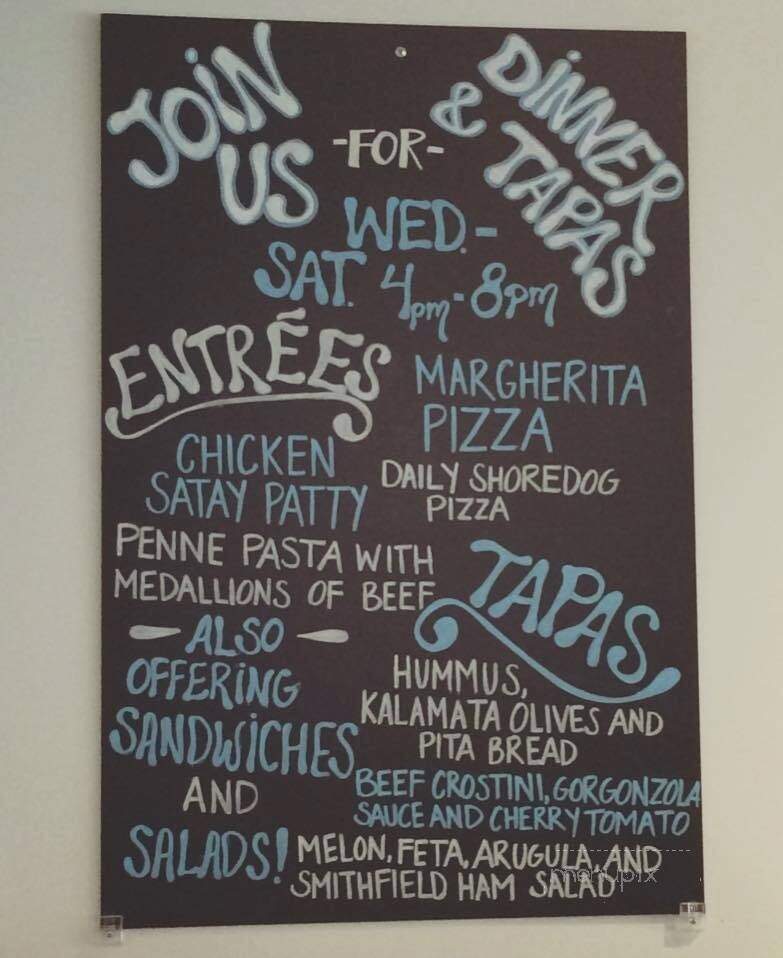 JOIN
US
-FOR-
DINNER
& TAPAS
WED.-
SAT. 4pm-8pm
ENTRÉES
CHICKEN
SATAY PATTY
PENNE PASTA WITH
MEDALLIONS OF BEEF
MARGHERITA
PIZZA
DAILY SHOREDOG
PIZZA
- ALSO -
OFFERING
SANDWICHES
AND
SALADS!
TAPAS
HUMMUS,
KALAMATA OLIVES AND
PITA BREAD
BEEF CROSTINI, GORGONZOLA
SAUCE AND CHERRY TOMATO
MELON, FETA, ARUGULA, AND
SMITHFIELD HAM SALAD
menupix